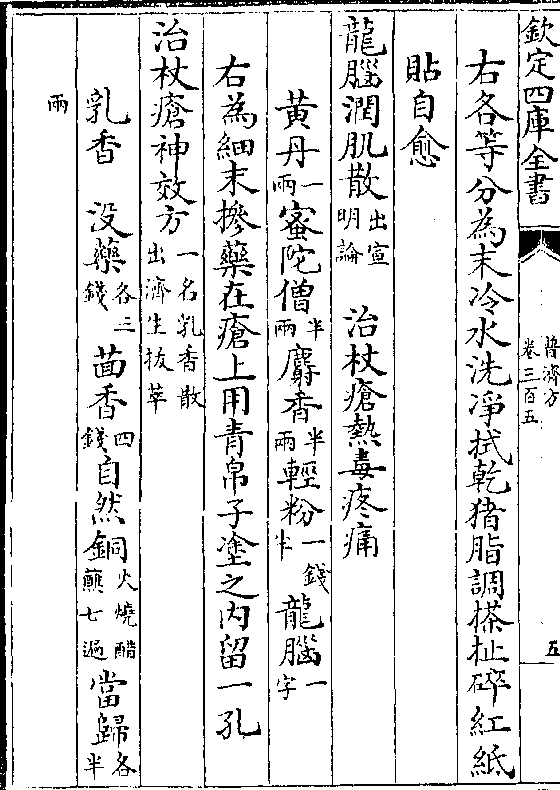 欽定四庫全書
普濟方
卷三百五
五
右各等分為末冷水洗凈拭乾猪脂調搽扯碎紅紙
貼自愈
龍腦潤肌散出宣明論 治杖瘡熱毒疼痛
黄丹一兩蜜陀僧半兩麝香半兩輕粉一錢半龍腦一字
右為細末摻藥在瘡上用青帛子塗之内留一孔
治杖瘡神效方一名乳香散出濟生拔萃
乳香 没藥各三錢茴香四錢自然銅火燒醋蘸七遍當歸各半
兩